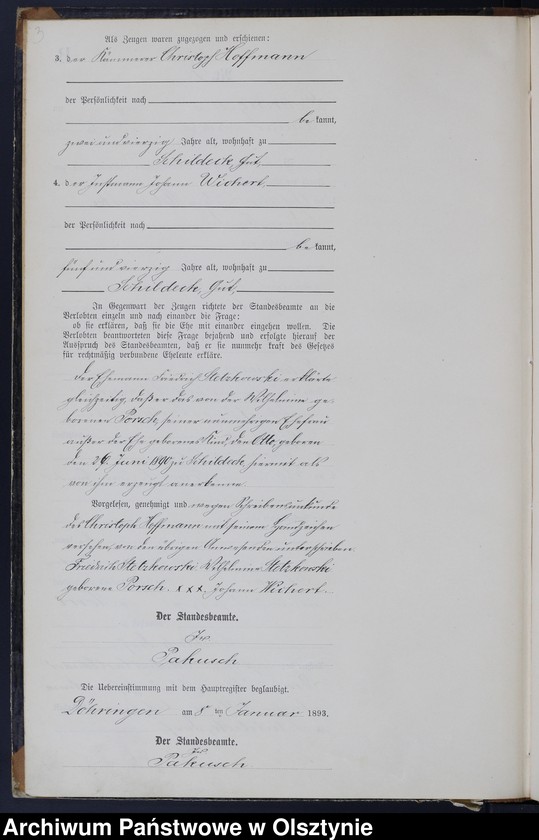 Als Zeugen waren zugezogen und erschienen:
3. der Kämmerer Christoph Hoffmann
der Persönlichkeit nach
be kannt,
zwei und vierzig Jahre alt, wohnhaft zu
Schildeck, Gut
4. der Instmann Johann Wichert
der Persönlichkeit nach
be kannt,
fünf und vierzig Jahre alt, wohnhaft zu
Schildeck, Gut
In Gegenwart der Zeugen richtete der Standesbeamte an die
Verlobten einzeln und nach einander die Frage:
ob sie erklären, daß sie die Ehe mit einander eingehen wollen. Die
Verlobten beantworteten diese Frage bejahend und erfolgte hierauf der
Ausspruch des Standesbeamten, daß er sie nunmehr kraft des Gesetzes
für rechtmäßig verbundene Eheleute erkläre.
Der Ehemann Friedrich Stetzkowski erklärte
gleichzeitig, daß er das von der Wilhelmine ge-
borenen Porsch, seiner nunmehrigen Ehefrau
außer der Ehe geborenes Kind, den Otto, geboren
den 26. Juni 1890 zu Schildeck, hiermit als
von ihm erzeugt anerkenne.
Vorgelesen, genehmigt und wegen Schreibensunkunde
des Christoph Hoffmann mit seinem Handzeichen
versehen, von den übrigen Anwesenden unterschrieben
Friedrich Stetzkowski Wilhelmine Stetzkowski
geborene Porsch. x x x. Johann Wichert.
Der Standesbeamte.
Pakusch
Die Uebereinstimmung mit dem Hauptregister beglaubigt.
Döhringen am 8 ten Januar 1893.
Der Standesbeamte.
Pakusch
Archiwum Państwowe w Olsztynie